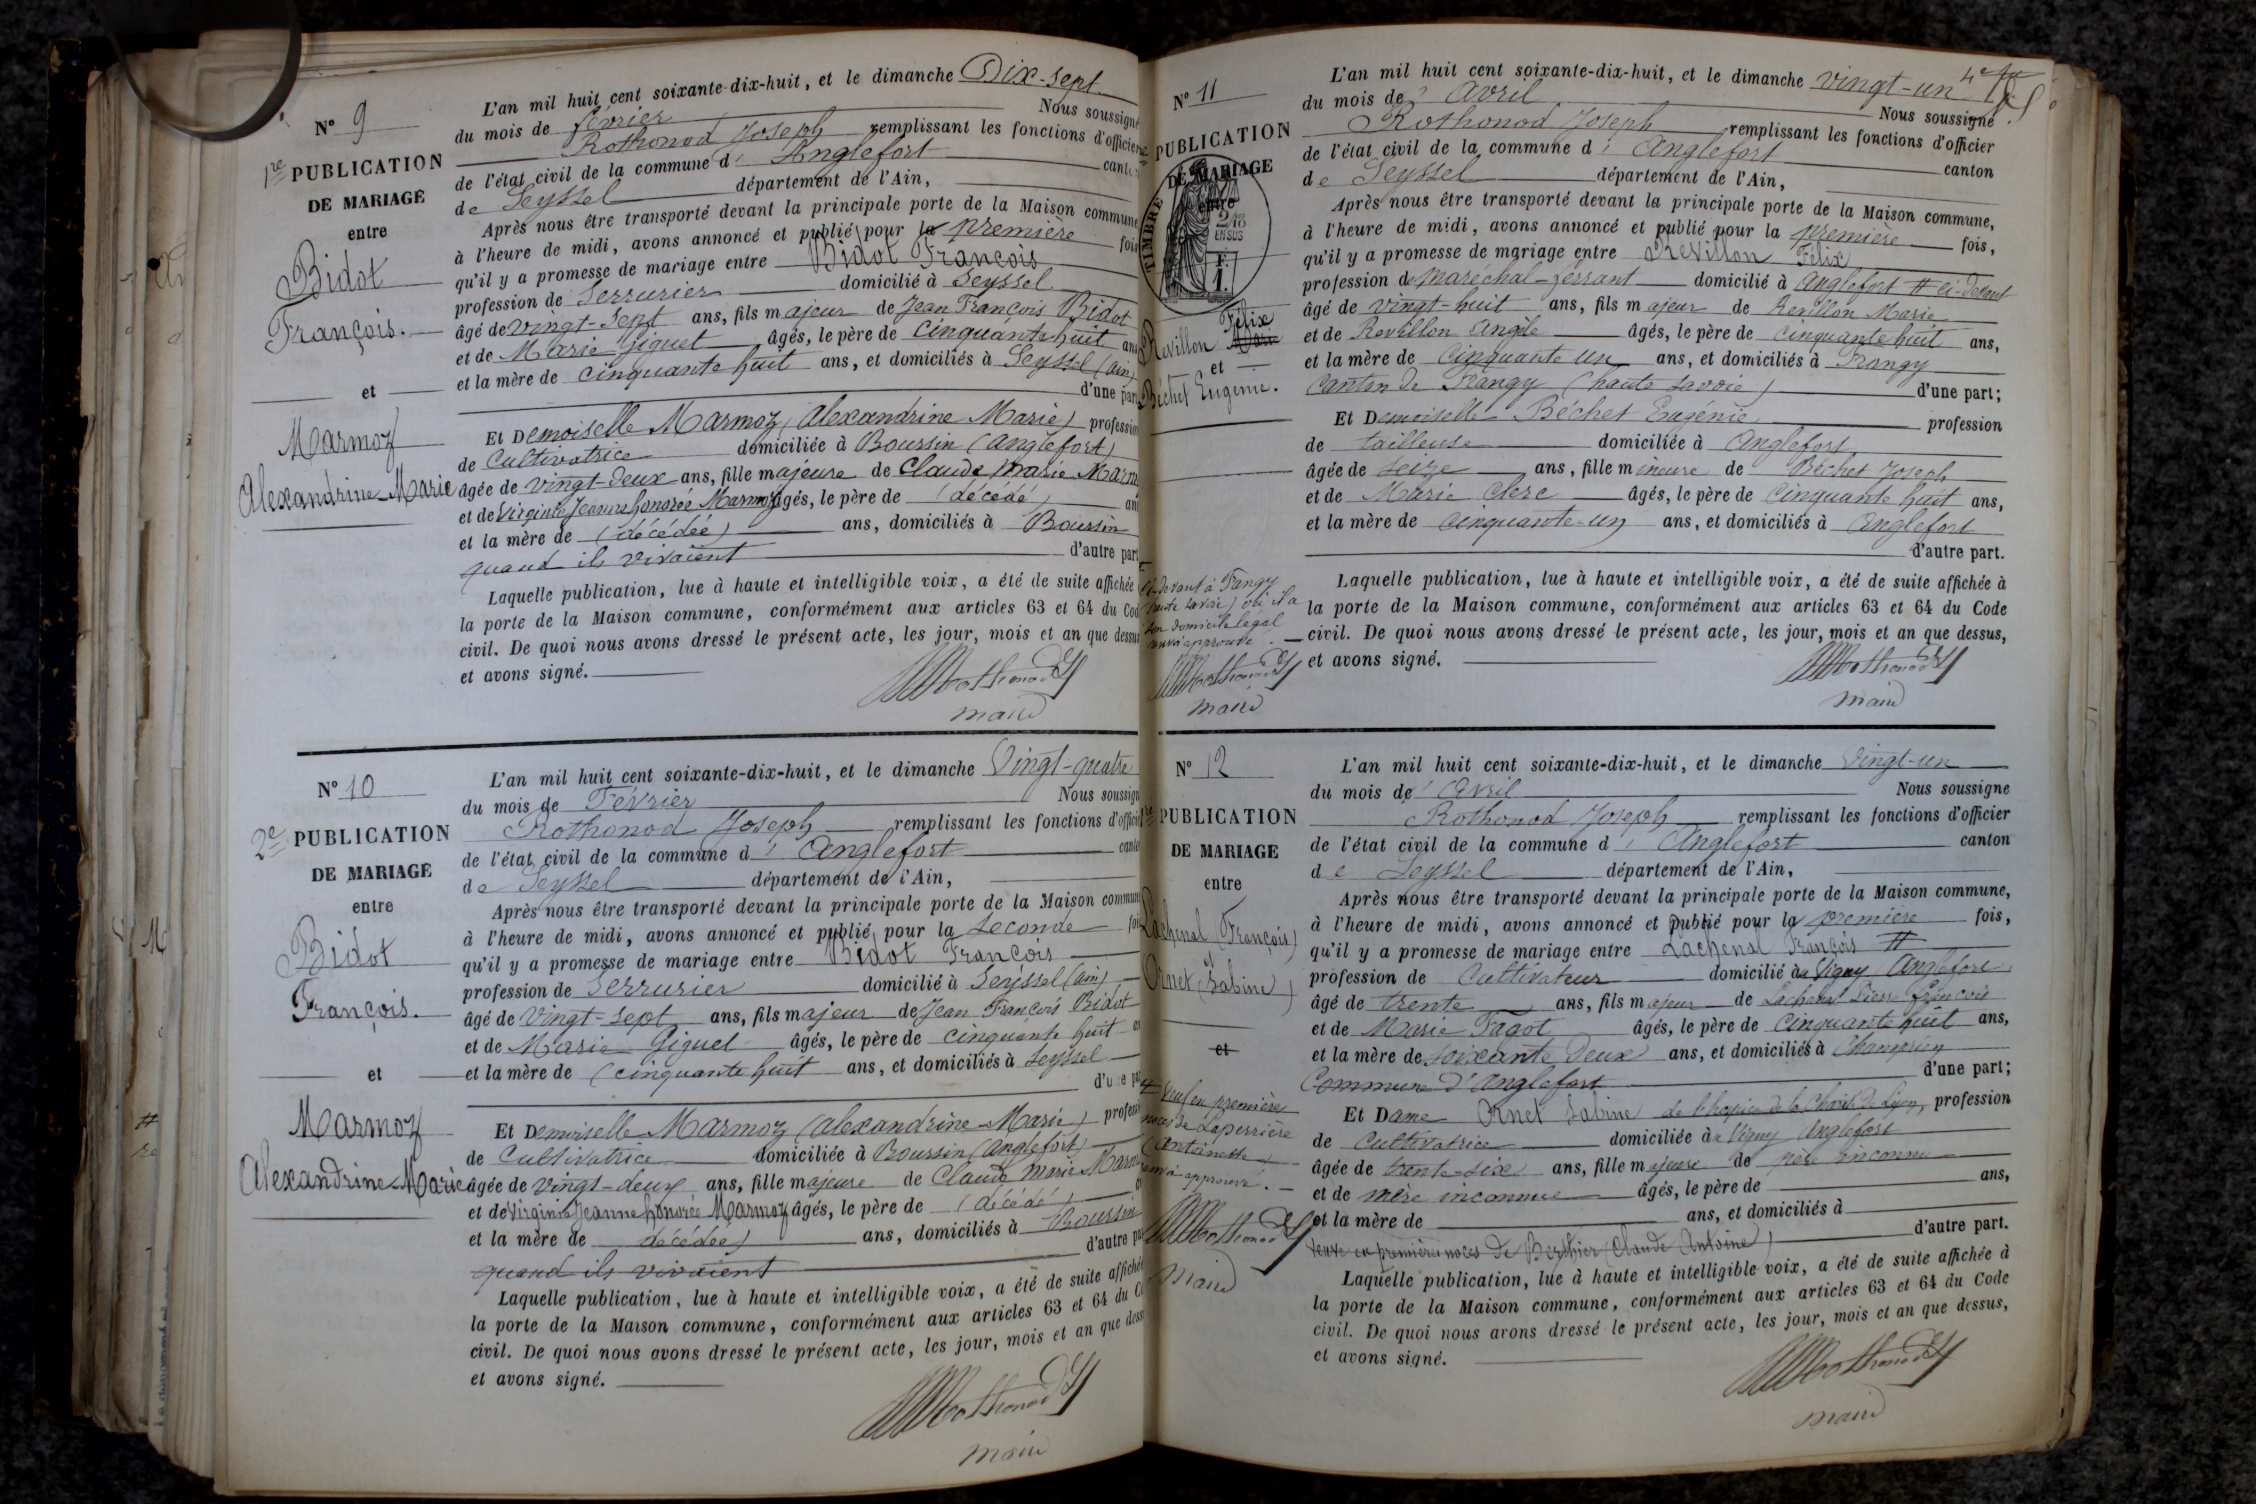 N° 9
1re PUBLICATION
DE MARIAGE
entre
Bidot
François.
et
Marmoz
Alexandrine Marie
L'an mil huit cent soixante-dix-huit, et le dimanche Dix-sept
du mois de février Nous soussigné
Rothonod Joseph remplissant les fonctions d'officier
de l'état civil de la commune d' Anglefort canton
de Seyssel département de l'Ain,
Après nous être transporté devant la principale porte de la Maison commune
à l'heure de midi, avons annoncé et publié pour la première fois
qu'il y a promesse de mariage entre Bidot François
profession de Serrurier domicilié à Seyssel
âgé de vingt-sept ans, fils majeur de Jean François Bidot
et de Marie Giguet âgés, le père de cinquante huit ans
et la mère de cinquante huit ans, et domiciliés à Seyssel (ain)
d'une part
Et Demoiselle Marmoz (Alexandrine Marie) profession
de Cultivatrice domiciliée à Boursin (anglefort)
âgée de vingt-deux ans, fille majeure de Claude Marie Marm
et de Virginie Jeanne honorée Marmoz âgés, le père de (décédé) ans
et la mère de (décédée) ans, domiciliés à Boursin
quand ils vivaient d'autre part
Laquelle publication, lue à haute et intelligible voix, a été de suite affichée
la porte de la Maison commune, conformément aux articles 63 et 64 du Cod
civil. De quoi nous avons dressé le présent acte, les jour, mois et an que dessus
et avons signé.
Rothonod
maire
N° 10
2e PUBLICATION
DE MARIAGE
entre
Bidot
François.
et
Marmoz
Alexandrine Marie
L'an mil huit cent soixante-dix-huit, et le dimanche Vingt-quatre
du mois de Février Nous soussign
Rothonod Joseph remplissant les fonctions d'officie
de l'état civil de la commune d' Anglefort canto
de Seyssel département de l'Ain,
Après nous être transporté devant la principale porte de la Maison commun
à l'heure de midi, avons annoncé et publié pour la Seconde foi
qu'il y a promesse de mariage entre Bidot François
profession de Serrurier domicilié à Seyssel (ain)
âgé de Vingt-sept ans, fils majeur de Jean François Bidot
et de Marie Giguet âgés, le père de cinquante huit
et la mère de (cinquante huit ans, et domiciliés à Seyssel
d'une pa
Et Demoiselle Marmoz (alexandrine Marie) profess
de Cultivatrice domiciliée à Boursin (Anglefort)
âgée de vingt-deux ans, fille majeure de Claude Marie Marm
et de Virginie Jeanne honorée Marmoz âgés, le père de (décédé)
et la mère de décédée) ans, domiciliés à Boursin
quand ils vivaient d'autre pa
Laquelle publication, lue à haute et intelligible voix, a été de suite affiché
la porte de la Maison commune, conformément aux articles 63 et 64 du C
civil. De quoi nous avons dressé le présent acte, les jour, mois et an que dess
et avons signé.
Rothonod
maire
4e
N° 11
PUBLICATION
DE MARIAGE
entre
TIMBRE
2/10
EN SUS
F.
1.
Revillon Félix
et
Béchet Eugénie.
L'an mil huit cent soixante-dix-huit, et le dimanche vingt-un
du mois de Avril Nous soussigné
Rothonod Joseph remplissant les fonctions d'officier
de l'état civil de la commune d' Anglefort canton
de Seyssel département de l'Ain,
Après nous être transporté devant la principale porte de la Maison commune,
à l'heure de midi, avons annoncé et publié pour la première fois,
qu'il y a promesse de mariage entre Revillon Félix
profession de Maréchal-ferrant domicilié à Anglefort # ci-devant
âgé de vingt-huit ans, fils majeur de Revillon Marie
et de Revillon Angèle âgés, le père de cinquante huit ans,
et la mère de cinquante un ans, et domiciliés à Frangy
Canton de Frangy (haute savoie) d'une part;
Et Demoiselle Béchet Eugénie profession
de tailleuse domiciliée à Anglefort
âgée de seize ans, fille mineure de Béchet Joseph
et de Marie Clerc âgés, le père de cinquante huit ans,
et la mère de cinquante-un ans, et domiciliés à Anglefort
d'autre part.
ci-devant à Frangy
haute savoie) où il a
son domicile légal
renvoi approuvé.
Rothonod
maire
Laquelle publication, lue à haute et intelligible voix, a été de suite affichée à
la porte de la Maison commune, conformément aux articles 63 et 64 du Code
civil. De quoi nous avons dressé le présent acte, les jour, mois et an que dessus,
et avons signé.
Rothonod
maire
N° 12
PUBLICATION
DE MARIAGE
entre
Lachenal (François)
et
Ornet (Sabine)
et
L'an mil huit cent soixante-dix-huit, et le dimanche Vingt-un
du mois de Avril Nous soussigne
Rothonod Joseph remplissant les fonctions d'officier
de l'état civil de la commune d' Anglefort canton
de Seyssel département de l'Ain,
Après nous être transporté devant la principale porte de la Maison commune,
à l'heure de midi, avons annoncé et publié pour la première fois,
qu'il y a promesse de mariage entre Lachenal François #
profession de Cultivateur domicilié à Vigny Anglefort
âgé de trente ans, fils majeur de Lachenal François
et de Marie Fagot âgés, le père de Cinquante huit ans,
et la mère de soixante deux ans, et domiciliés à Champriond
Commune d'Anglefort d'une part;
Et Dame Ornet Sabine de l'hospice de la Charité de Lyon, profession
de Cultivatrice domiciliée à Vigny Anglefort
âgée de trente-six ans, fille majeure de père inconnu
et de mère inconnue âgés, le père de ans,
et la mère de ans, et domiciliés à
Veuve en première noces de Berthier (Claude Antoine) d'autre part.
# Veuf en première
noces de Laperrière
(Antoinette)
renvoi approuvé.
Rothonod
maire
Laquelle publication, lue à haute et intelligible voix, a été de suite affichée à
la porte de la Maison commune, conformément aux articles 63 et 64 du Code
civil. De quoi nous avons dressé le présent acte, les jour, mois et an que dessus,
et avons signé.
Rothonod
maire